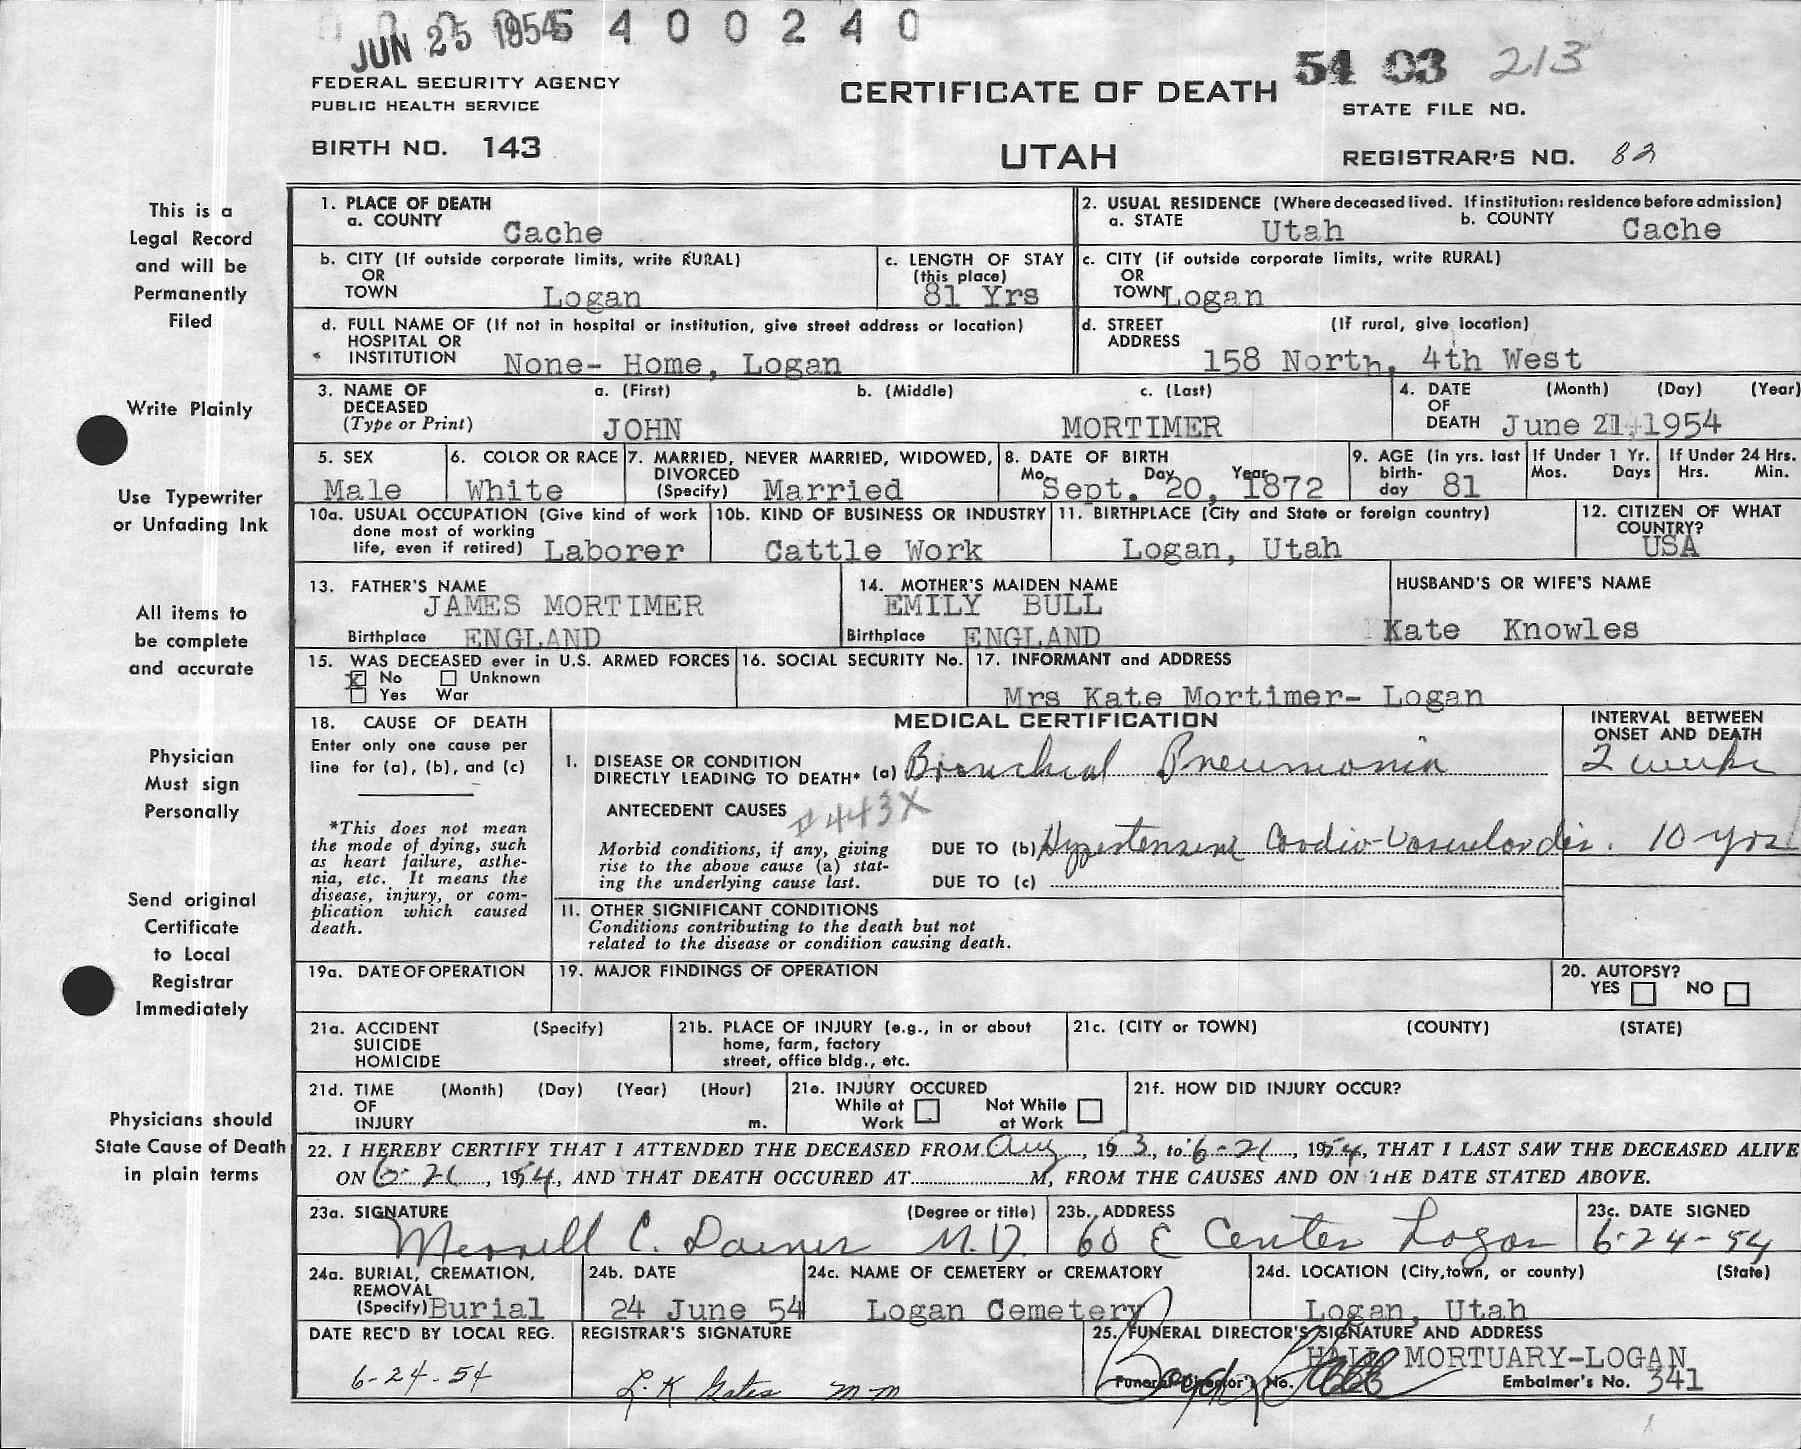 JUN 25 1954 5 4 0 0 2 4 0
54 03 213
FEDERAL SECURITY AGENCY
PUBLIC HEALTH SERVICE
CERTIFICATE OF DEATH
STATE FILE NO.
BIRTH NO. 143
UTAH
REGISTRAR'S NO. 82
This is a
Legal Record
and will be
Permanently
Filed
Write Plainly
Use Typewriter
or Unfading Ink
All items to
be complete
and accurate
Physician
Must sign
Personally
Send original
Certificate
to Local
Registrar
Immediately
Physicians should
State Cause of Death
in plain terms
1. PLACE OF DEATH
a. COUNTY Cache
2. USUAL RESIDENCE (Where deceased lived. If institution: residence before admission)
a. STATE Utah b. COUNTY Cache
b. CITY (If outside corporate limits, write RURAL)
OR
TOWN Logan
c. LENGTH OF STAY
(this place)
81 Yrs
c. CITY (if outside corporate limits, write RURAL)
OR
TOWN Logan
d. FULL NAME OF (If not in hospital or institution, give street address or location)
HOSPITAL OR
INSTITUTION None- Home, Logan
d. STREET (If rural, give location)
ADDRESS
158 North, 4th West
3. NAME OF a. (First) b. (Middle) c. (Last)
DECEASED
(Type or Print) JOHN MORTIMER
4. DATE (Month) (Day) (Year)
OF
DEATH June 21,1954
5. SEX
Male
6. COLOR OR RACE
White
7. MARRIED, NEVER MARRIED, WIDOWED,
DIVORCED
(Specify) Married
8. DATE OF BIRTH
Mo. Day Year
Sept. 20, 1872
9. AGE (in yrs. last
birth-
day 81
If Under 1 Yr.
Mos. Days
If Under 24 Hrs.
Hrs. Min.
10a. USUAL OCCUPATION (Give kind of work
done most of working
life, even if retired) Laborer
10b. KIND OF BUSINESS OR INDUSTRY
Cattle Work
11. BIRTHPLACE (City and State or foreign country)
Logan, Utah
12. CITIZEN OF WHAT
COUNTRY?
USA
13. FATHER'S NAME
JAMES MORTIMER
Birthplace ENGLAND
14. MOTHER'S MAIDEN NAME
EMILY BULL
Birthplace ENGLAND
HUSBAND'S OR WIFE'S NAME
Kate Knowles
15. WAS DECEASED ever in U.S. ARMED FORCES
X No Unknown
Yes War
16. SOCIAL SECURITY No.
17. INFORMANT and ADDRESS
Mrs Kate Mortimer- Logan
18. CAUSE OF DEATH
Enter only one cause per
line for (a), (b), and (c)
*This does not mean
the mode of dying, such
as heart failure, asthe-
nia, etc. It means the
disease, injury, or com-
plication which caused
death.
MEDICAL CERTIFICATION
INTERVAL BETWEEN
ONSET AND DEATH
1. DISEASE OR CONDITION
DIRECTLY LEADING TO DEATH* (a) Bronchial Pneumonia 2 weeks
ANTECEDENT CAUSES #443X
Morbid conditions, if any, giving
rise to the above cause (a) stat-
ing the underlying cause last.
DUE TO (b) Hypertensive Cardio-Vascular dis. 10 yrs
DUE TO (c)
11. OTHER SIGNIFICANT CONDITIONS
Conditions contributing to the death but not
related to the disease or condition causing death.
19a. DATE OF OPERATION
19. MAJOR FINDINGS OF OPERATION
20. AUTOPSY?
YES NO
21a. ACCIDENT (Specify)
SUICIDE
HOMICIDE
21b. PLACE OF INJURY (e.g., in or about
home, farm, factory
street, office bldg., etc.
21c. (CITY or TOWN) (COUNTY) (STATE)
21d. TIME (Month) (Day) (Year) (Hour)
OF
INJURY m.
21e. INJURY OCCURED
While at Not While
Work at Work
21f. HOW DID INJURY OCCUR?
22. I HEREBY CERTIFY THAT I ATTENDED THE DECEASED FROM Aug, 1953, to 6-21, 1954, THAT I LAST SAW THE DECEASED ALIVE
ON 6-21, 1954, AND THAT DEATH OCCURED AT M, FROM THE CAUSES AND ON THE DATE STATED ABOVE.
23a. SIGNATURE (Degree or title)
Merrell C. Daines M.D.
23b. ADDRESS
60 E Center Logan
23c. DATE SIGNED
6-24-54
24a. BURIAL, CREMATION,
REMOVAL
(Specify) Burial
24b. DATE
24 June 54
24c. NAME OF CEMETERY or CREMATORY
Logan Cemetery
24d. LOCATION (City, town, or county) (State)
Logan, Utah
DATE REC'D BY LOCAL REG.
6-24-54
REGISTRAR'S SIGNATURE
L. K Gates m m
25. FUNERAL DIRECTOR'S SIGNATURE AND ADDRESS
HALL MORTUARY-LOGAN
Funeral Director's No.
Embalmer's No. 341